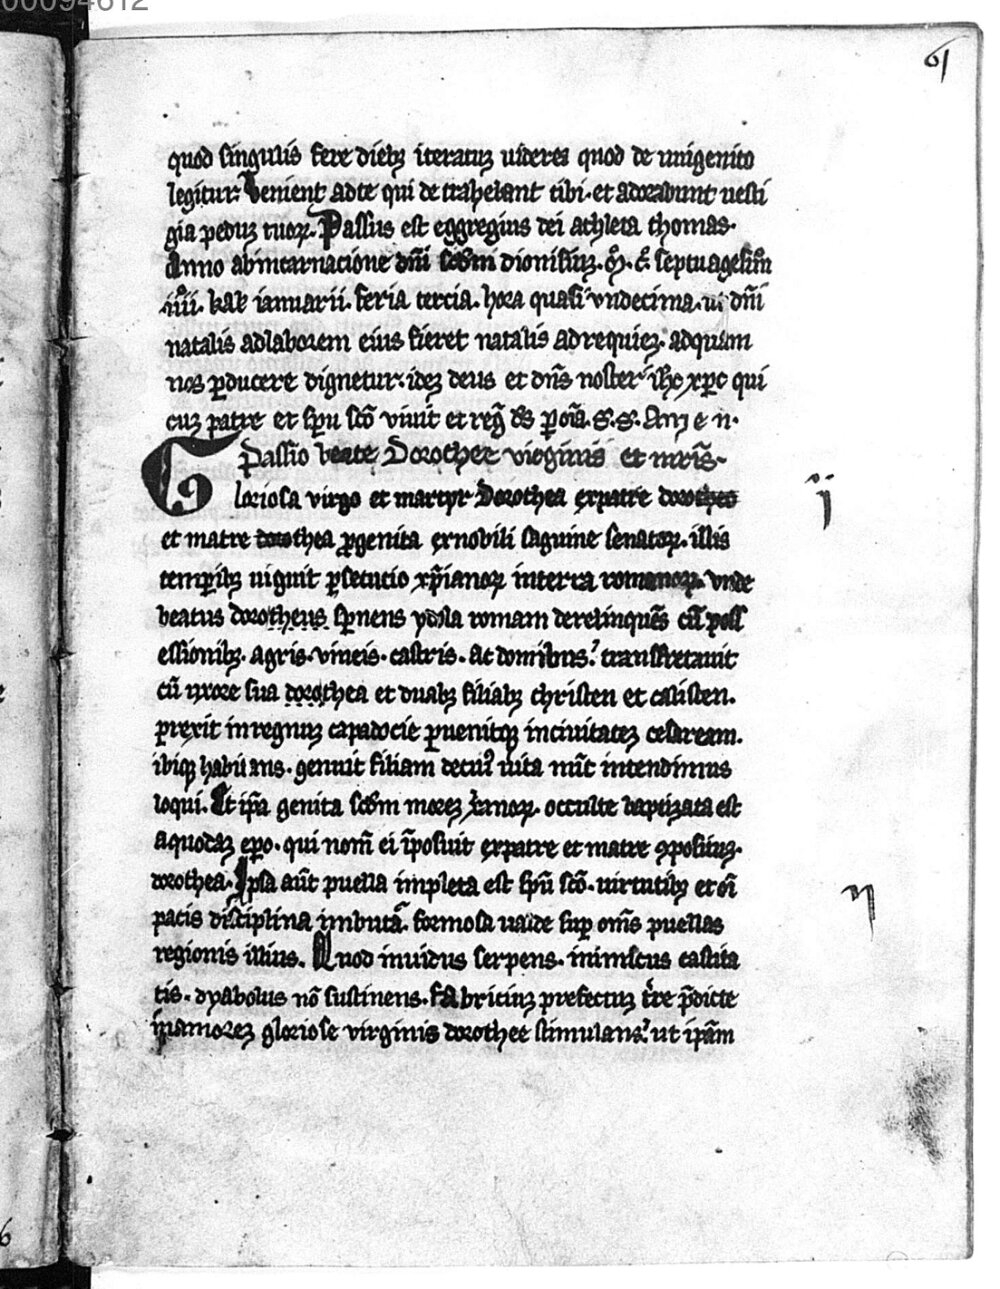 00094612
61
quod singulis fere diebꝫ iteratuꝫ uideres quod de unigenito
legitur. Venient adte qui de trahebant tibi. et adorabunt uesti
gia peduꝫ tuoꝝ. Passus est eggregius dei achleta thomas.
Anno abincarnacione dn̄i scdm dionisiuꝫ. септuagesimo
iiii. kaƚ ianuarii. feria tercia. hora quasi vndecima. ut dn̄i
natalis adlaborem eius fieret natalis adrequieꝫ. adquam
nos ꝑducere dignetur. ideꝫ deus et dn̄s noster ihc xp̄c qui
cuꝫ patre et sp̄u sc̄o viuit et reḡ ds̄ ꝑ oīa. s. s. Amen.
Passio beate Dorothee virginis et mr̄is.
Gloriosa virgo et martyr Dorothea expatre dorotheo
ij
et matre dorothea ꝓgenita exnobili saguine senatoꝝ. illis
temꝑibꝫ uiguit ꝑsecutio xp̄ianoꝝ interra romanoꝝ. vnde
beatus dorotheus spernens ydola romam derelinquēs cū poss
essionibꝫ. agris. vineis. castris. ac domibus. transfretauit
cū uxore sua dorothea et duabꝫ filiabꝫ christen et calisten.
ꝑrexit inregnuꝫ capadocie ꝑuenitqꝫ inciuitateꝫ cesaream.
ibiqꝫ habitans. genuit filiam decuiꝰ uita nūc intendimus
loqui. Et ip̄a genita scdm moreꝫ xr̄anoꝝ. occulte baptizata est
aquodaꝫ ep̄o. qui nom̄ ei īposuit expatre et matre ꝯpositiuꝫ.
dorothea. Ipsa aūt puella impleta est sp̄u sc̄o. uirtutibꝫ et oī
η
pacis disciplina imbuta. formosa ualde suꝑ om̄s puellas
regionis illius. Quod inuidus serpens. inimicus castita
tis. dyabolus nō sustinens. fabriciuꝫ prefectuꝫ tr̄re p̄dicte
inamoreꝫ gloriose virginis dorothee stimulans. ut ip̄am
6